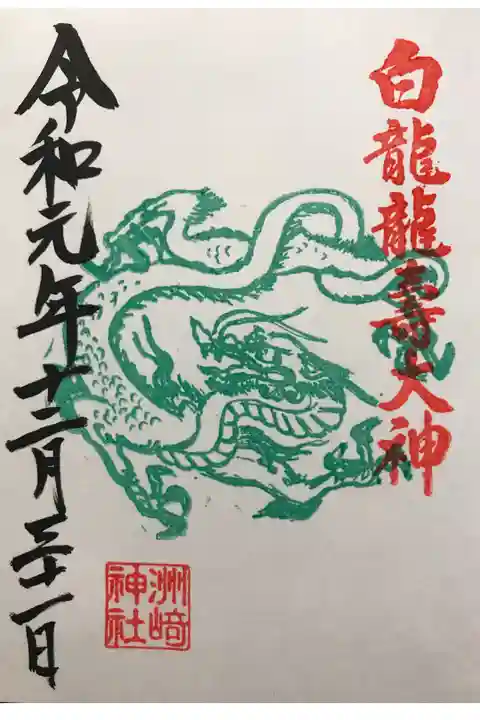 白龍龍壽大神
令和元年十二月三十一日
洲崎
神社